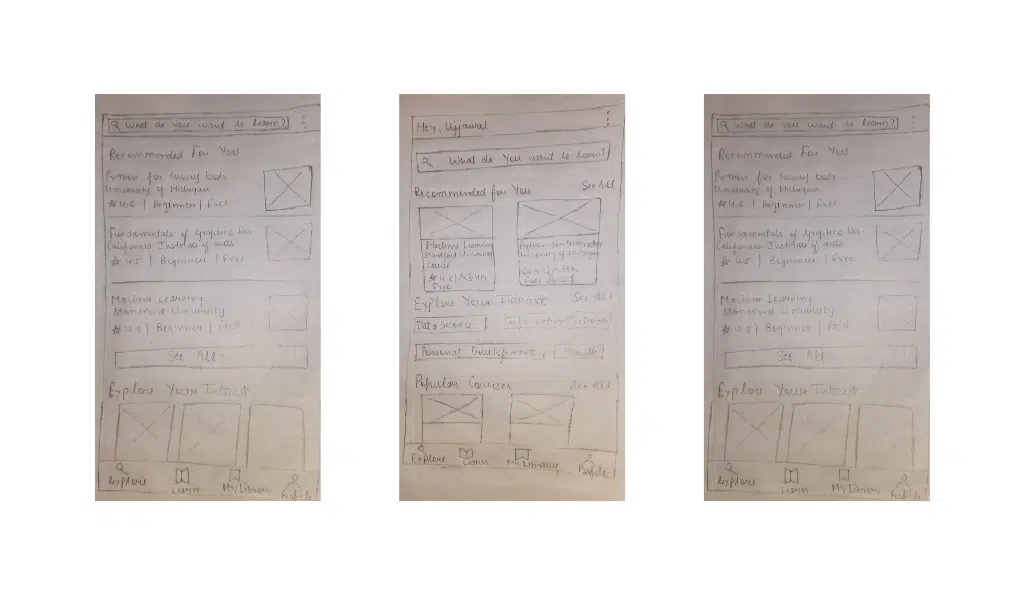 What do you want to learn?
Recommended For You
Python for Every body
University of Michigan
4.8 | Beginner | Free
Fundamentals of Graphic Des-
California Institute of arts
4.5 | Beginner | Free
Machine Learning
Standford University
4.9 | Beginner | Paid
See All
Explore Your Intrest
Explore
Learn
My Library
Profile
Hey, Ujjawal
What do You want to learn?
Recommended for You
See All
Machine Learning
Standford University
Course
Free
University of Michigan
Explore Your Intrest
See All
Data Science
Personal Development
Health
Popular Courses
See All
Explore
Learn
My Library
Profile
What do you want to learn?
Recommended For You
Python for Every body
University of Michigan
4.8 | Beginner | Free
Fundamentals of Graphic Des-
California Institute of arts
4.5 | Beginner | Free
Machine Learning
Standford University
4.9 | Beginner | Paid
See All
Explore Your Intrest
Explore
Learn
My Library
Profile